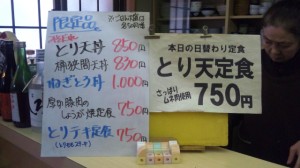 限定品
とり天丼 850円
830円
ねぎとろ丼 1,000円
厚切豚肉の
しょうが焼定食 750円
とりテキ定食 750円
本日の日替わり定食
とり天定食
さっぱり
ムネ肉使用 750円